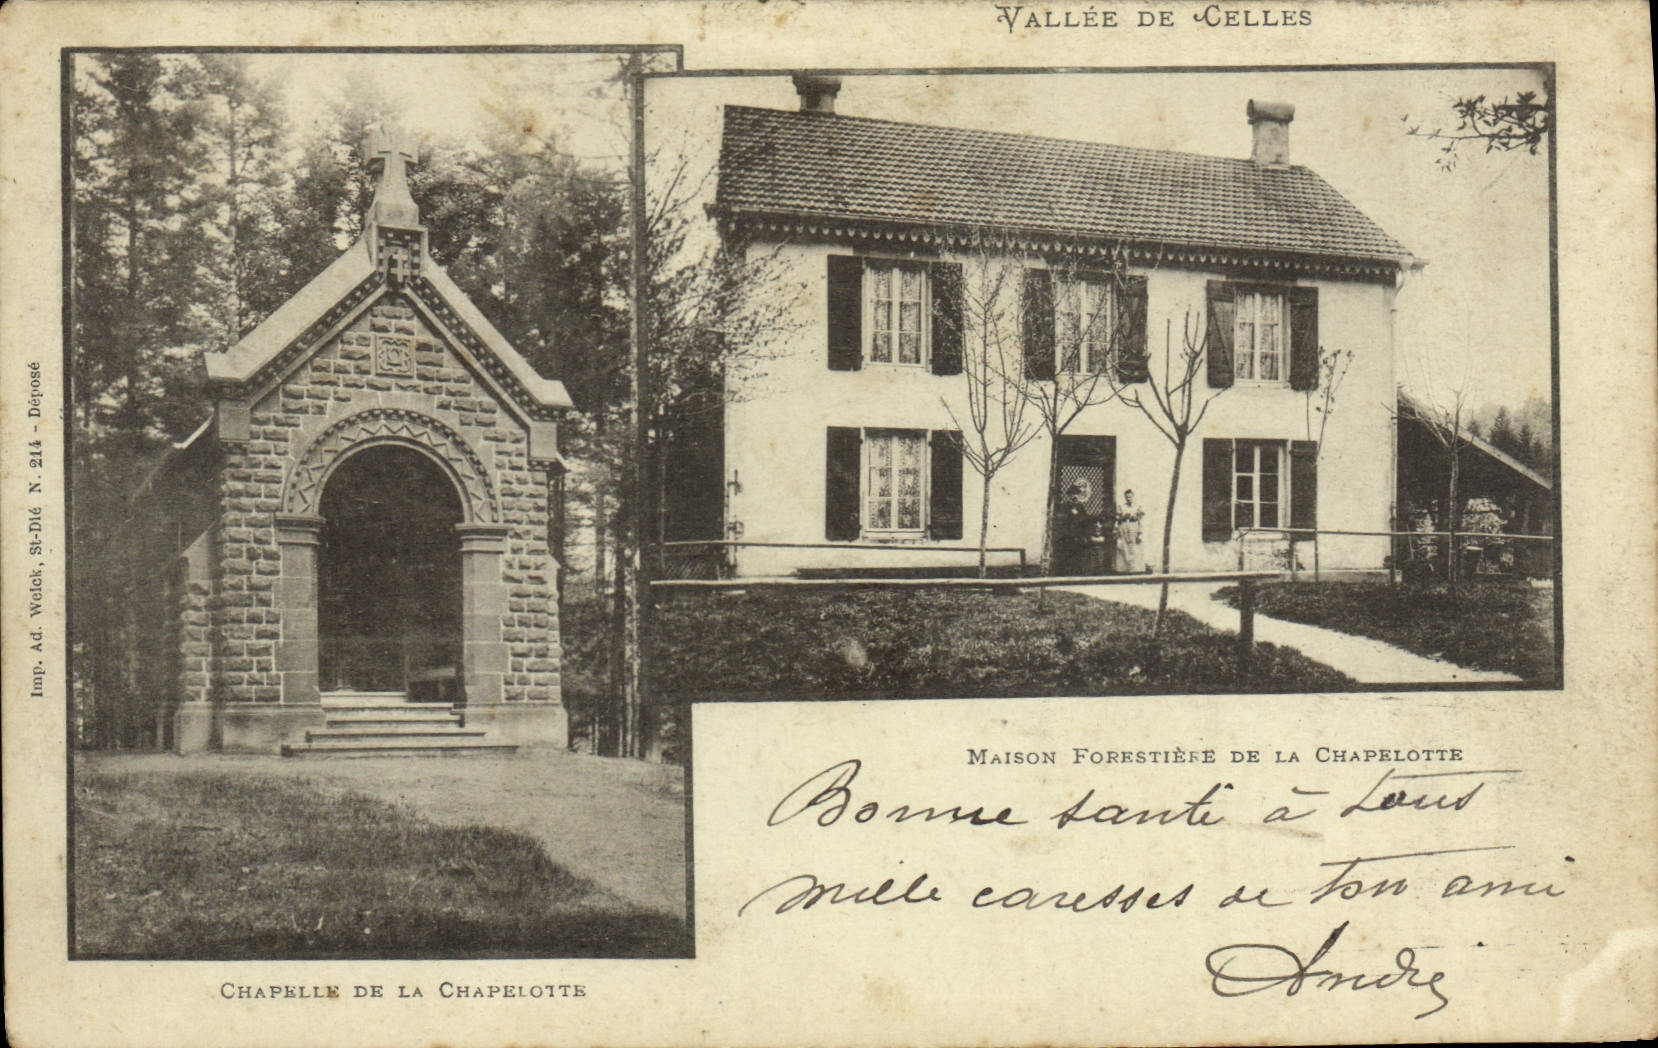 VALLÉE DE CELLES
Imp. Ad. Weick, St-Dié N. 214 - Déposé
MAISON FORESTIÈRE DE LA CHAPELOTTE
Bonne santé à tous
mille caresses de ton ami
André
CHAPELLE DE LA CHAPELOTTE